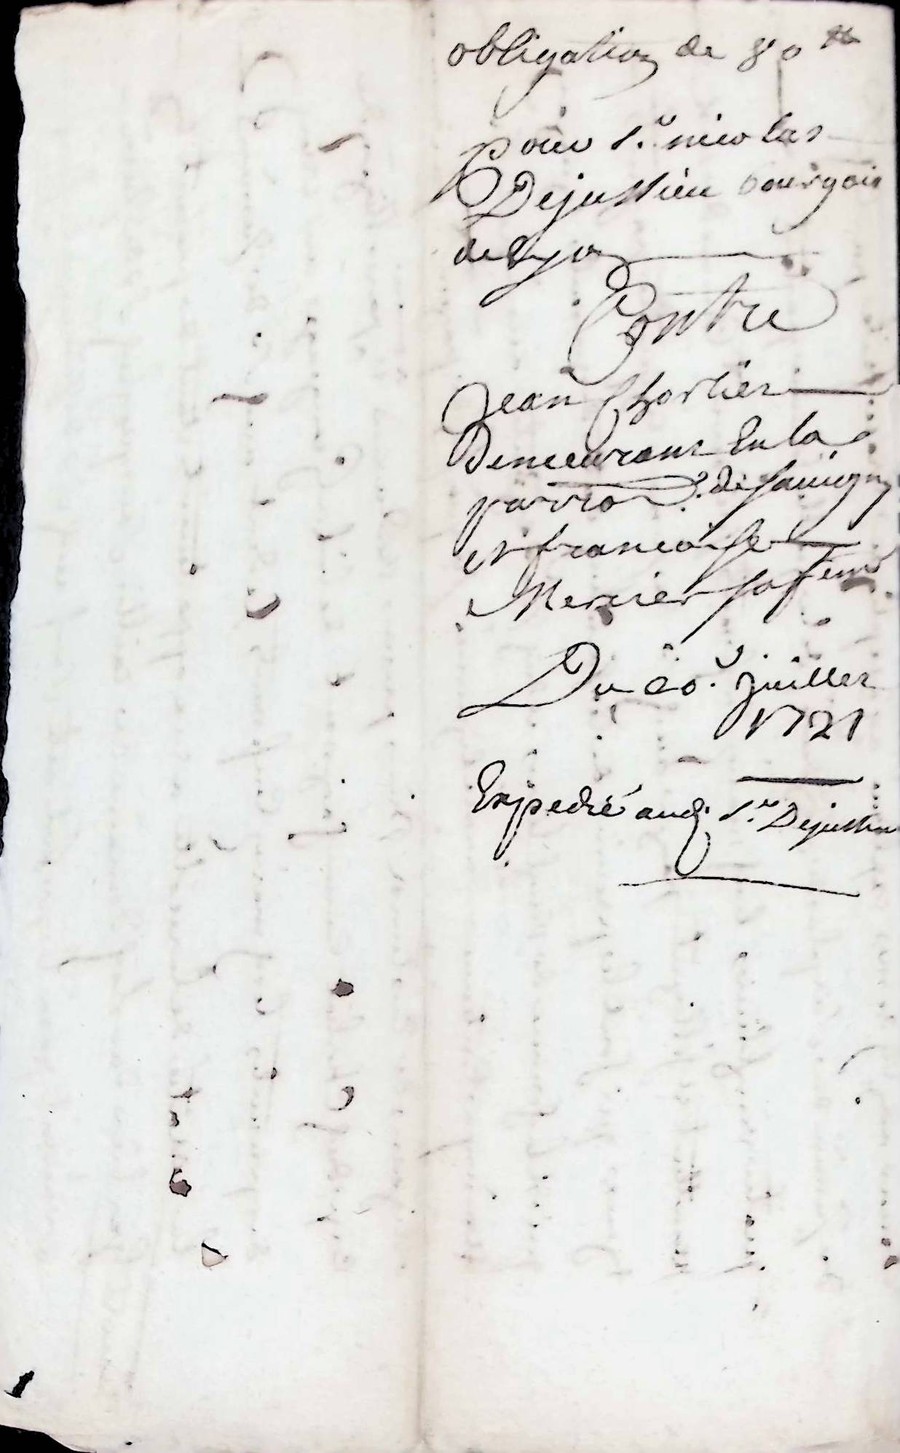 obligation de 80 ₶
pour Sr nicolas
Dejussieu bourgois
de Lyon
Contre
Jean Charlier
Demeurant En la
parroisse de Savigny
et francoise
Mercier sa feme
Du 20e Juillet
1721
Expedié aud. Sr Dejussieu